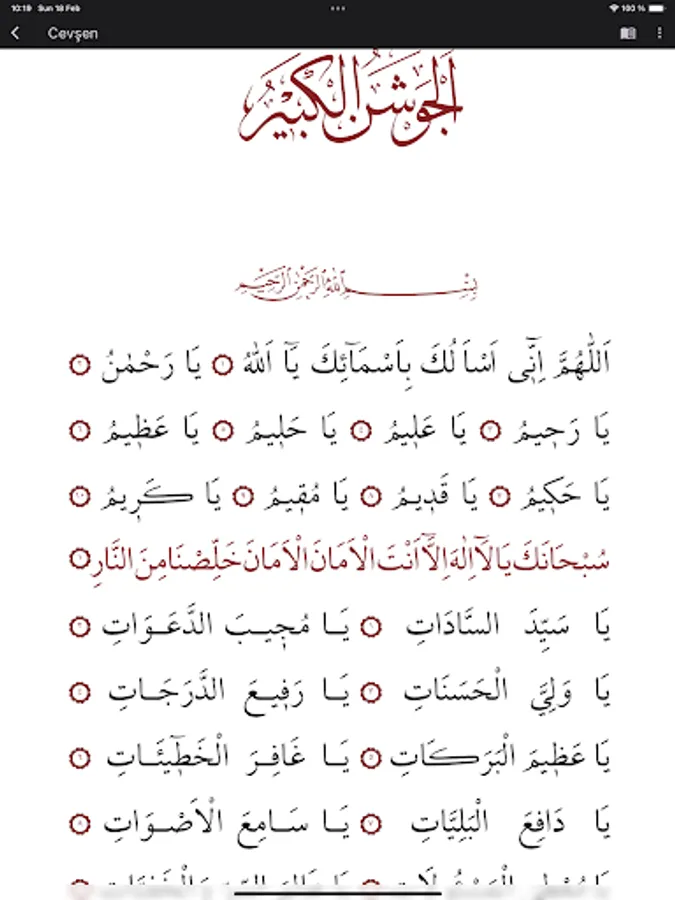 10:19 Sun 18 Feb 100 %
Cevşen
اَلْجَوْشَنُ الْكَبِيرُ
بِسْــــــمِ اللهِ الرَّحْمٰنِ الرَّحِيمِ
اَللّٰهُمَّ اِنِّٓى اَسْاَلُكَ بِاَسْمَٓائِكَ يَٓا اَللّٰهُ ١ يَا رَحْمٰنُ ٢
يَا رَحِيمُ ٣ يَا عَلِيمُ ٤ يَا حَلِيمُ ٥ يَا عَظِيمُ ٦
يَا حَكِيمُ ٧ يَا قَدِيمُ ٨ يَا مُقِيمُ ٩ يَا كَرِيمُ ١٠
سُبْحَانَكَ يَا لَٓا اِلٰهَ اِلَّٓا اَنْتَ الْاَمَانَ الْاَمَانَ خَلِّصْنَا مِنَ النَّارِ ١
يَا سَيِّدَ السَّادَاتِ ١ يَــا مُجِيــبَ الدَّعَــوَاتِ ٢
يَا وَلِيَّ الْحَسَنَاتِ ٣ يَــا رَفِيــعَ الدَّرَجَــاتِ ٤
يَا عَظِيمَ الْبَرَكَاتِ ٥ يَــا غَافِــرَ الْخَطِٓيئَــاتِ ٦
يَا دَافِعَ الْبَلِيَّاتِ ٧ يَــا سَــامِعَ الْاَصْــوَاتِ ٨